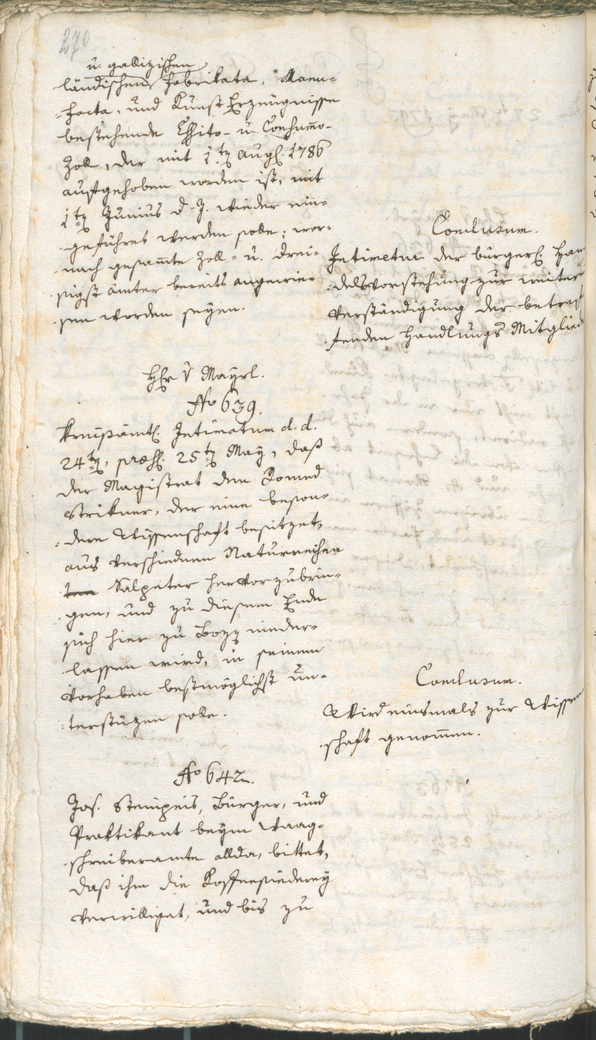 270
u. gallizischen
ländischen Fabrikata, Manu-
facta, und Kunst Erzeugnisse
bestehende Essito- u. Consumo-
Zoll, der mit 1ten Augs. 1786
aufgehoben worden ist, mit
1ten Junius d. J. wieder ein-
geführet werden solle; wor-
nach gesammte Zoll- u. Drei-
sigst ämter bereits angewie-
sen worden seyen.
Conclusum.
Intimetur der bürgerl. Han-
delsvorstehung zur weitern
Verständigung der betref-
fenden Handlungs Mitglieder
Hr. v Mayrl.
No 639.
Kreisämtl. Intimatum d. d.
24ten, præs. 25ten May, daß
der Magistrat dem Romed
Strikner, der eine beson-
dere Wissenschaft besitzet,
aus verschiednen Naturreichen
Salpeter hervorzubrin-
gen, und zu diesem Ende
sich hier zu Bozen nieder-
lassen wird, in seinem
Vorhaben bestmöglichst un-
terstüzen solle.
Conclusum.
Wird einsmals zur Wissen-
schaft genommen.
No 642.
Jos. Stempeis, Bürger, und
Praktikant beym Waag-
schreiberamte allda, bittet,
daß ihm die Koffeesiederey
verwilliget, und bis zu